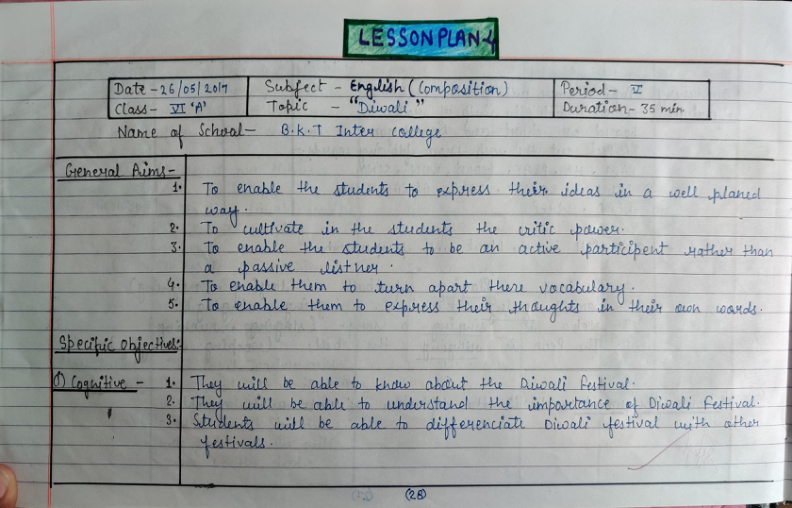 LESSON PLAN-4
Date - 26/05/2017 Subject - English (Composition) Period - V
Class - VI 'A' Topic - "Diwali" Duration - 35 min
Name of School - B.K.T Inter College
General Aims -
1. To enable the students to express their ideas in a well planed
way.
2. To cultivate in the students the critic power.
3. To enable the students to be an active participent rather than
a passive listner.
4. To enable them to turn apart there vocabulary.
5. To enable them to express their thoughts in their own words.
Specific Objectives:-
1) Cognitive - 1. They will be able to know about the Diwali festival.
2. They will be able to understand the importance of Diwali Festival.
3. Students will be able to differenciate Diwali festival with other
festivals.
(28)